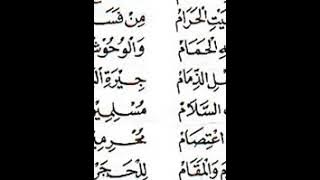 ـيْتِ الْحَرَامْ مِنْ فَسَا
ـهِ الْحَمَامْ وَالْوُحُوشْ
ـلِ الذِّمَامْ جِيْرَةِ الْـ
السَّلَامْ مُسْلِمِيْـ
اعْتِصَامْ مُحْرِمِيْـ
وَالْمَقَامْ لِلْحَجَرْ